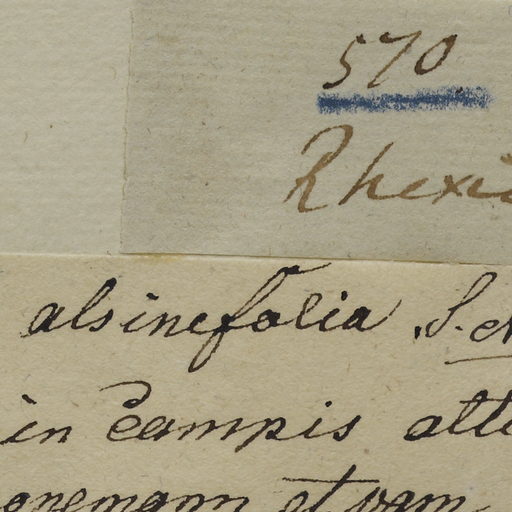 570
Rhexi
alsinefolia S.
in Campis alt
et